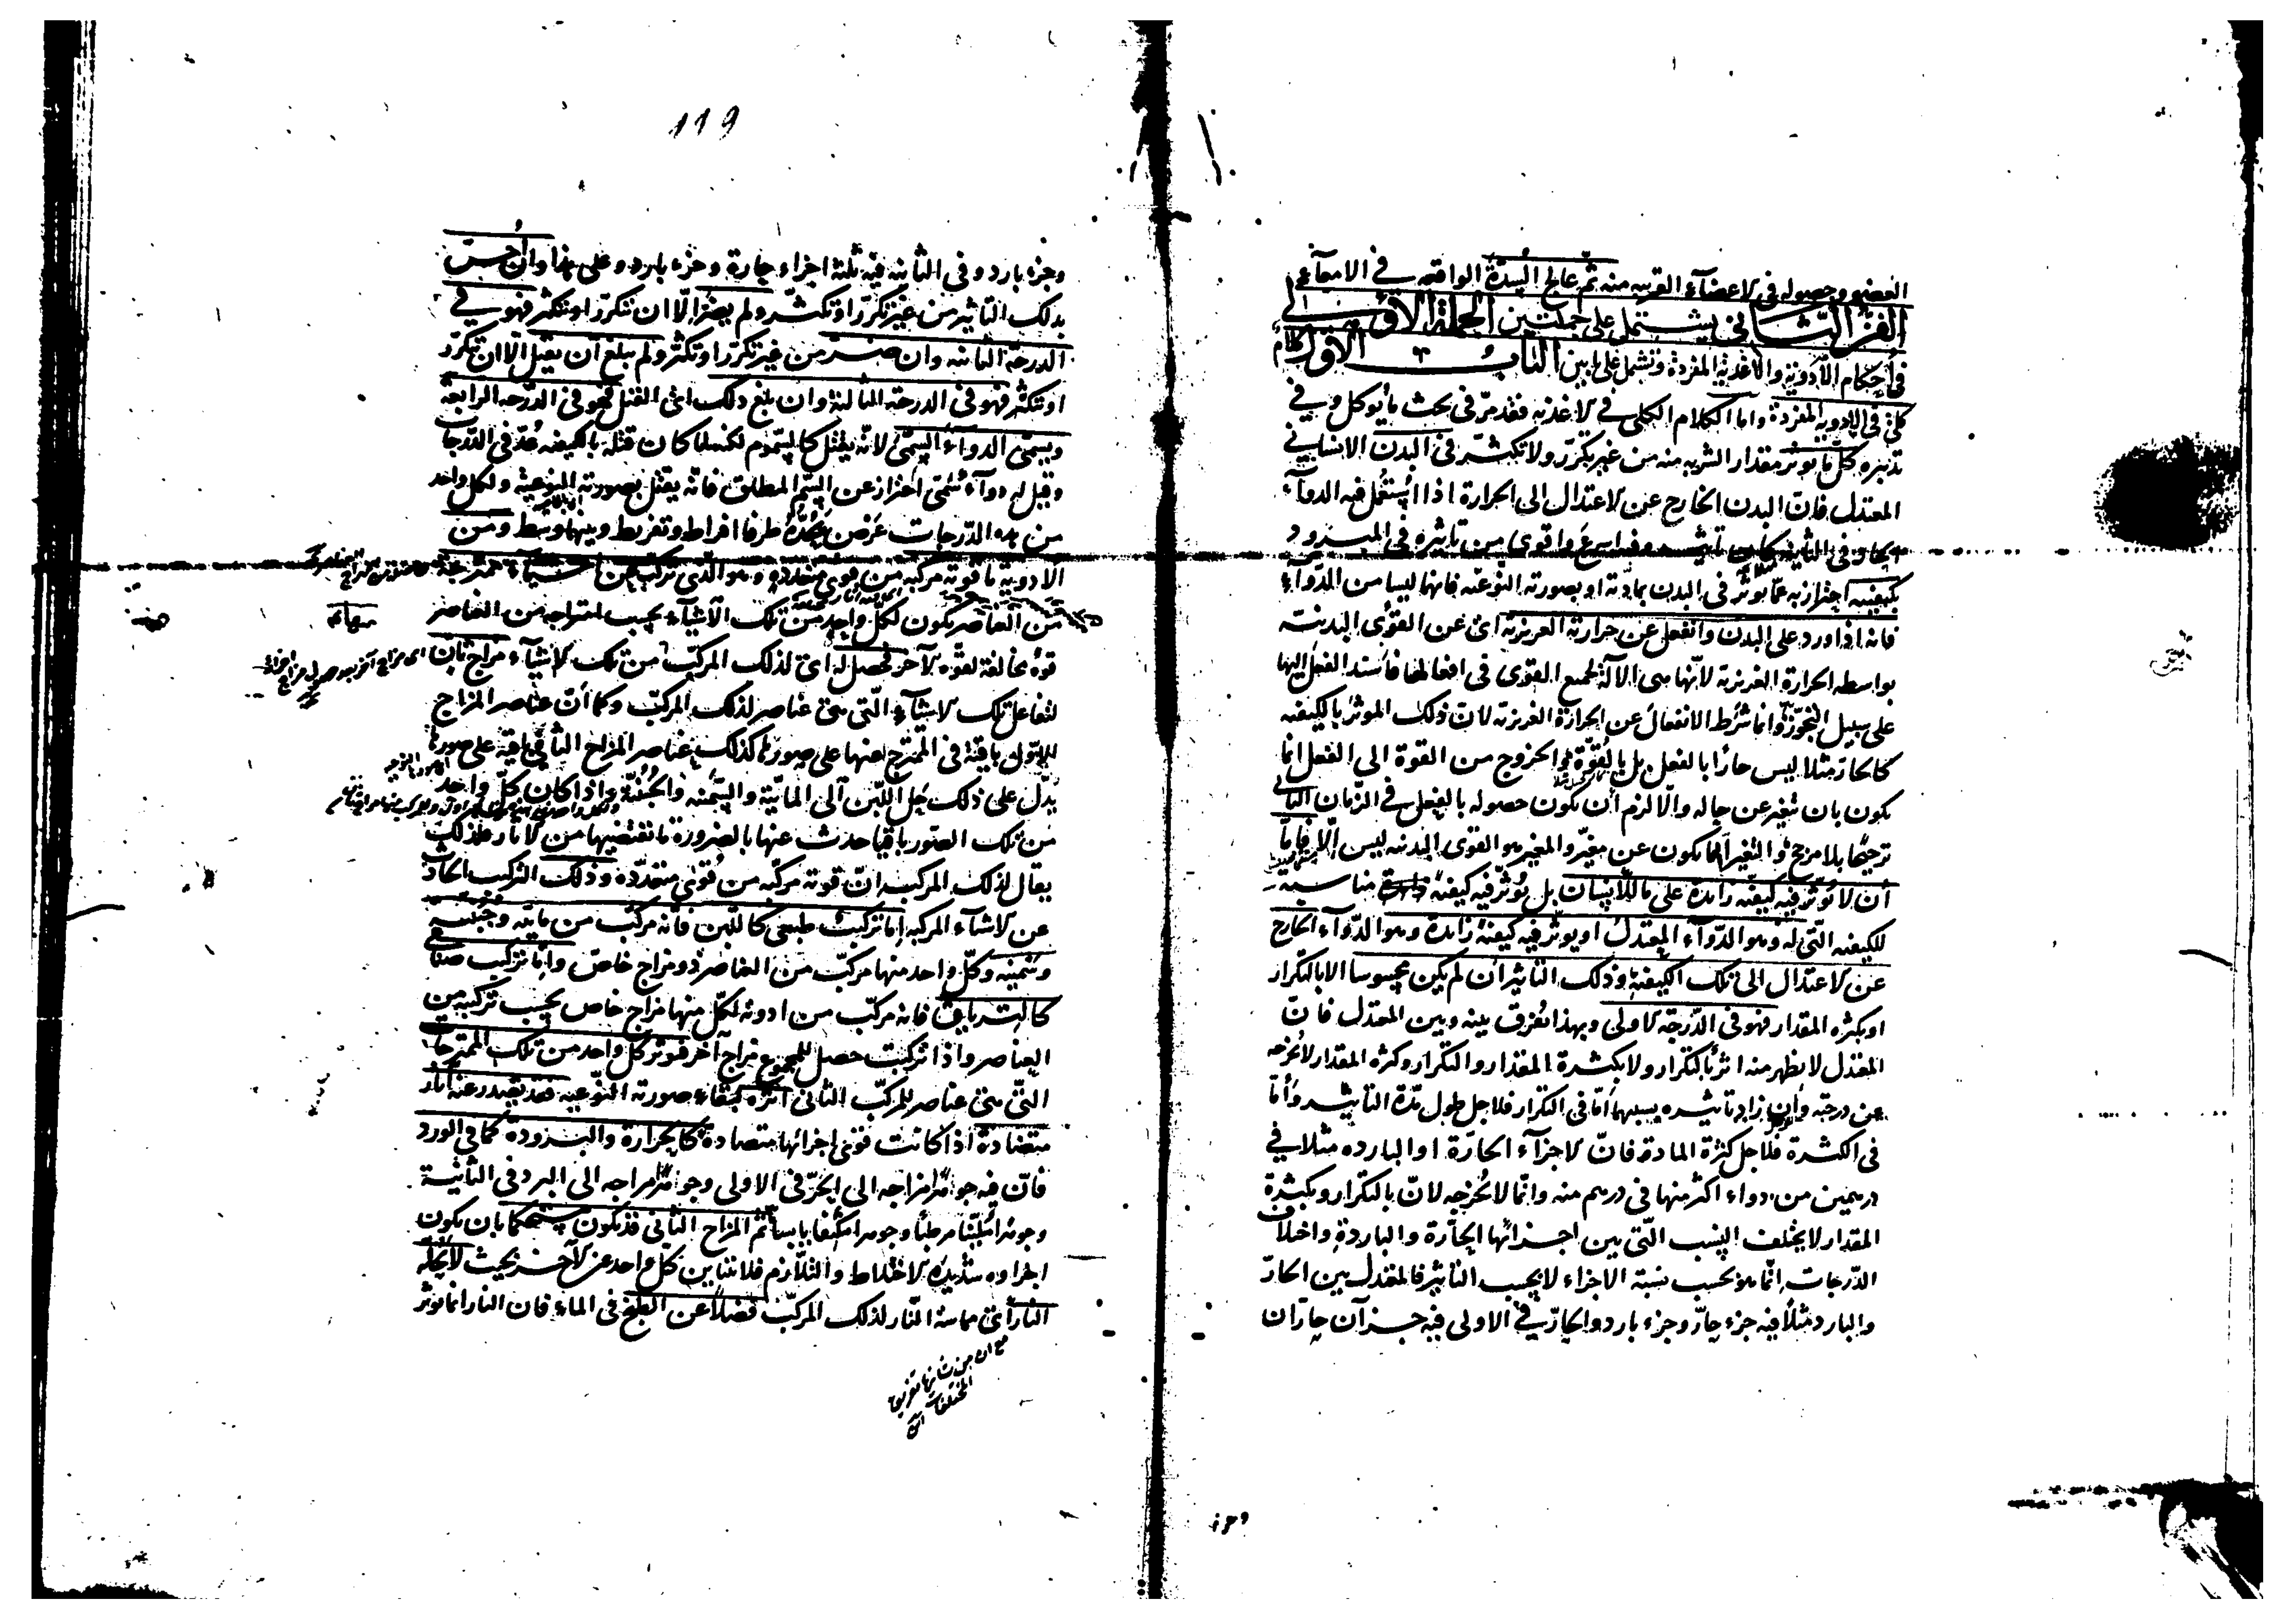 العضو وحصوله فى الاعضآء القريبه منه ثم عالج السدة الواقعه فى الامعآء
الفن الثانى يشتمل على جملتين الجملة الاولى
فى احكام الادوية والاغذية المفردة وتشتمل على بابين الباب الاول كلام
كلى فى الادويه المفردة واما الكلام الكلى فى الاغذيه فقد مرّ فى بحث ما يؤكل وفى
تدبيره كل ما يؤثر مقدار الشربه منه من غير تكرّر ولا تكثّر فى البدن الانسانى
المعتدل فانّ البدن الخارج عن الاعتدال الى الحرارة اذا استعمل فيه الدوآء
الحار فى الثانية كان تاثيره فيه اسرع واقوى من تاثيره فى المبرود
بكيفيته احترز به عما يؤثر فى البدن بمادته او بصورته النوعيه فانهما ليسا من الدوآء
فانه اذا ورد على البدن وانفعل عن حرارته الغريزية اى عن القوى البدنية
بواسطه الحرارة الغريزية لانّها هى الآلة لجميع القوى فى افعالها فاسند الفعل اليها
على سبيل التجوّز وانما شرط الانفعال عن الحرارة الغريزية لان ذلك الموثر بالكيفيه
كالحار مثلا ليس حارًا بالفعل بل بالقوّة والخروج من القوة الى الفعل انما
يكون بان تغير عن حاله والّا لزم ان يكون حصوله بالفعل فى الزمان الثانى
ترجيحًا بلا مرجح والتغير انما يكون عن مغيّر والمغير هو القوى البدنيه ليس الّا فامّا
أن لا تؤثر فيه كيفيه زايدة على ما للانسان بل يؤثر فيه كيفية مناسبة
للكيفيه التى له وهو الدّوآء المعتدل او يؤثر فيه كيفية زائدة وهو الدّوآء الخارج
عن الاعتدال الى تلك الكيفية وذلك التاثير ان لم يكن محسوسا الا بالتكرار
او بكثره المقدار فهو فى الدّرجه الاولى وبهذا تفرق بينه وبين المعتدل فانّ
المعتدل لا يظهر منه اثر بالتكرار ولا بكثرة المقدار والتكرار وكثره المقدار لا تخرجه
عن درجته وان زاد تاثيره بسببهما اما فى التكرار فلاجل طول مدّة التاثير وأمّا
فى الكثرة فلاجل كثرة المادة فانّ الاجزآء الحارّة او البارده مثلا فى
درهمين من دواء اكثر منها فى درهم منه وانّما لا تخرجه لانّ بالتكرار وبكثرة
المقدار لا يختلف النسب التى بين اجزائها الحارّة والباردة واختلاف
الدّرجات انّما هو بحسب نسبة الاجزاء لا بحسب التاثير فالمعتدل بين الحارّ
والبارد مثلًا فيه جزء حارّ وجزء بارد والحارّ فى الاولى فيه جزآن حارّان
وجزء
119
وجزء بارد وفى الثانيه فيه ثلثة اجزاء حارة وجزء بارد وعلى هذا وان احسّ
بذلك التاثير من غير تكرّر او تكثّر ولم يضرّ الّا ان تتكرّر او تتكثر فهو فى
الدرجة الثانيه وان ضرّ من غير تكرّر او تكثر ولم يبلغ أن يقتل الّا ان تتكرّر
او تتكثر فهو فى الدرجة الثالثة وان بلغ ذلك اى القتل فهو فى الدّرجه الرابعة
ويسمّى الدوآء السمّى لانّه يقتل كالسّموم لكنه لما كان قتله بالكيفيه عُدّ فى الدّرجات
وقيل له دوآء سُمّى احترازا عن السمّ المطلق فانّه يقتل بصورته النوعيّة ولكل واحد
من هذه الدّرجات عرض يحدّه طرفا افراط وتفريط وبينهما وسط ومن
الادوية ما قوته مركبه من قوى متعدده وهو الّذى تركب من اشيآء ممتزجة
من العناصر يكون لكل واحد من تلك الاشيآء بحسب امتزاجه من العناصر
قوة مخالفة لقوّه الآخر فحصل له اى لذلك المركّب من تلك الاشيآء مزاج ثان
لتفاعل تلك الاشيآء التى هى عناصر لذلك المركّب وكما أنّ عناصر المزاج
الاوّل باقية فى الممتزج عنها على صورها كذلك عناصر المزاج الثانى باقية على صورها
يدّل على ذلك حل اللّبن الى المائيّة والسمنيه والجبنيّة واذا كان كلّ واحد
من تلك الصّور باقيا حدث عنها بالضرورة ما تقتضيها من الآثار ولذلك
يقال لذلك المركب انّ قوته مركبه من قوى متعدّده وذلك التركيب الحادث
عن الاشيآء المركبه إما تركيب طبيعى كاللّبن فانه مركب من مائيه وجبنيه
وسمنيه وكلّ واحد منها مركبّ من العناصر ذو مزاج خاصّ وإمّا تركيب صناعى
كالترياق فانه مركّب من ادويه لكل منها مزاج خاص بحسب تركيبه من
العناصر واذا تركبت حصل للمجموع مزاج آخر فيؤثر كل واحد من تلك الممتزجات
التى هى عناصر للمركّب الثانى اثره لبقاء صورته النوّعيه فقد يصدر عنه آثار
متضادة اذا كانت قوى اجزائها متضادة كالحرارة والبرودة كما فى الورد
فانّ فيه جوهرًا مزاجه الى الحرّ فى الاولى وجوهرًا مزاجه الى البرد فى الثانية
وجوهرا ملينا مرطبا وجوهرا مكثفا يابسا ثم المزاج الثانى قد يكون مستحكما بان يكون
اجزاوه شديدة الاختلاط والتلازم فلا تتباين كل واحد عن الآخر بحيث لا تحله
النار اى مماسّة النّار لذلك المركّب فضلًا عن الطبخ فى الماء فان النار انما يؤثر
مع ان من شانها تفريق
المختلفات